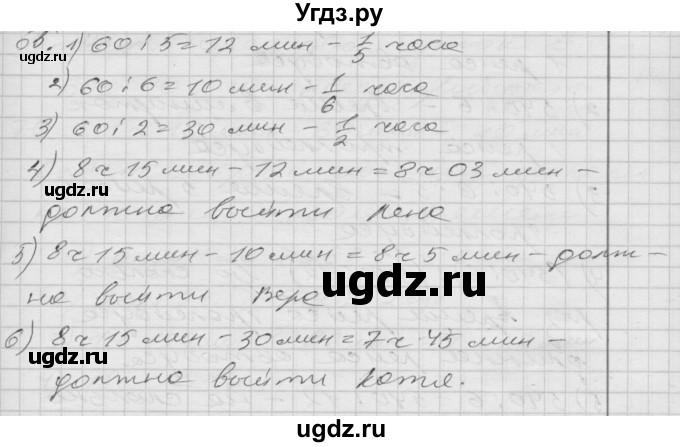 Угдз.ру
1) 60 : 5 = 12 мин - 1/5 часа
2) 60 : 6 = 10 мин - 1/6 часа
3) 60 : 2 = 30 мин - 1/2 часа
4) 8 ч 15 мин - 12 мин = 8 ч 03 мин -
ugdz.ru
должна выйти Лена
5) 8 ч 15 мин - 10 мин = 8 ч 5 мин - долж -
ugdz.ru
на выйти Вера
ugdz.ru
6) 8 ч 15 мин - 30 мин = 7 ч 45 мин -
ugdz.ru
должна выйти Катя.